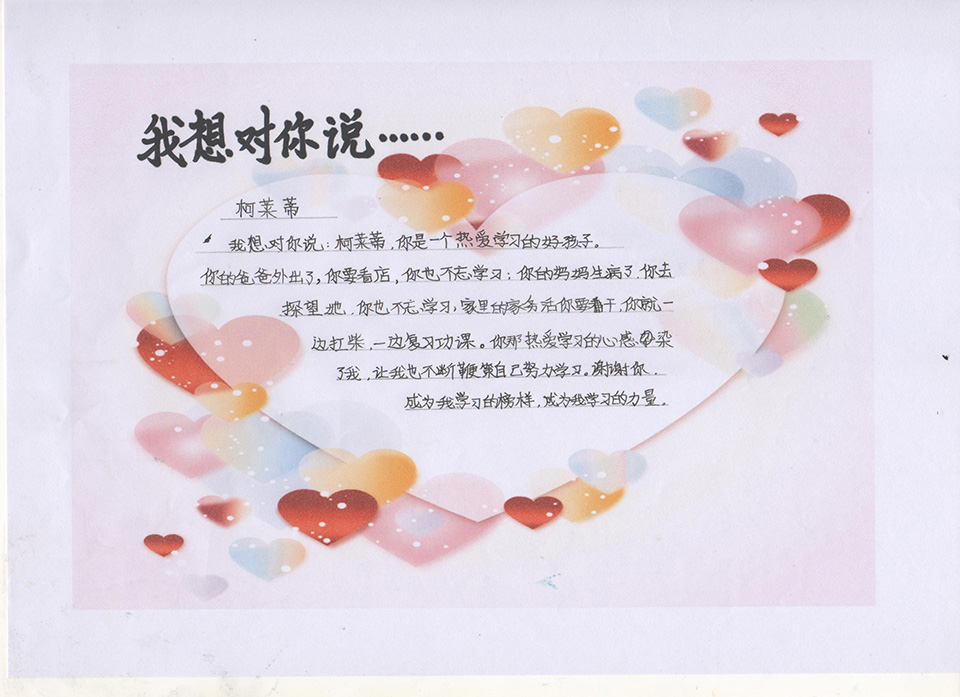 我想对你说……
柯莱蒂
我想对你说：柯莱蒂，你是一个热爱学习的好孩子。
你的爸爸外出了，你要看店，你也不忘学习；你的妈妈生病了你去
探望她，你也不忘学习；家里的家务活你要看干，你就一
边打柴，一边复习功课。你那热爱学习的心感染
了我，让我也不断鞭策自己努力学习。谢谢你，
成为我学习的榜样，成为我学习的力量。